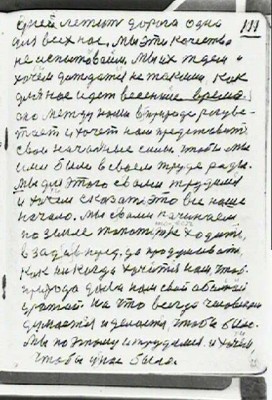 111
дней летит дорога одна
для всех нас. Мы эти качества
не испытовали, мы их ждем и
хочем дождатся не такими, как
для нас идет весеннее время.
оно между нами в природе расцве-
тает и хочет нам представить
свои начатые силы, чтобы мы
ими были в своем труде рады.
Мы для этого с вами трудимся
и хочем сказать, это все наше
начало. Мы с вами начинаем
по земле топотно ходить,
взад и вперед, да продумывать,
как ни когда хочется нам, чтоб
природа дала нам свой обильный
урожай. На что всегда человеком
думается и делается, чтоб было.
Мы поэтому и трудимся и хочем
чтобы у нас было.